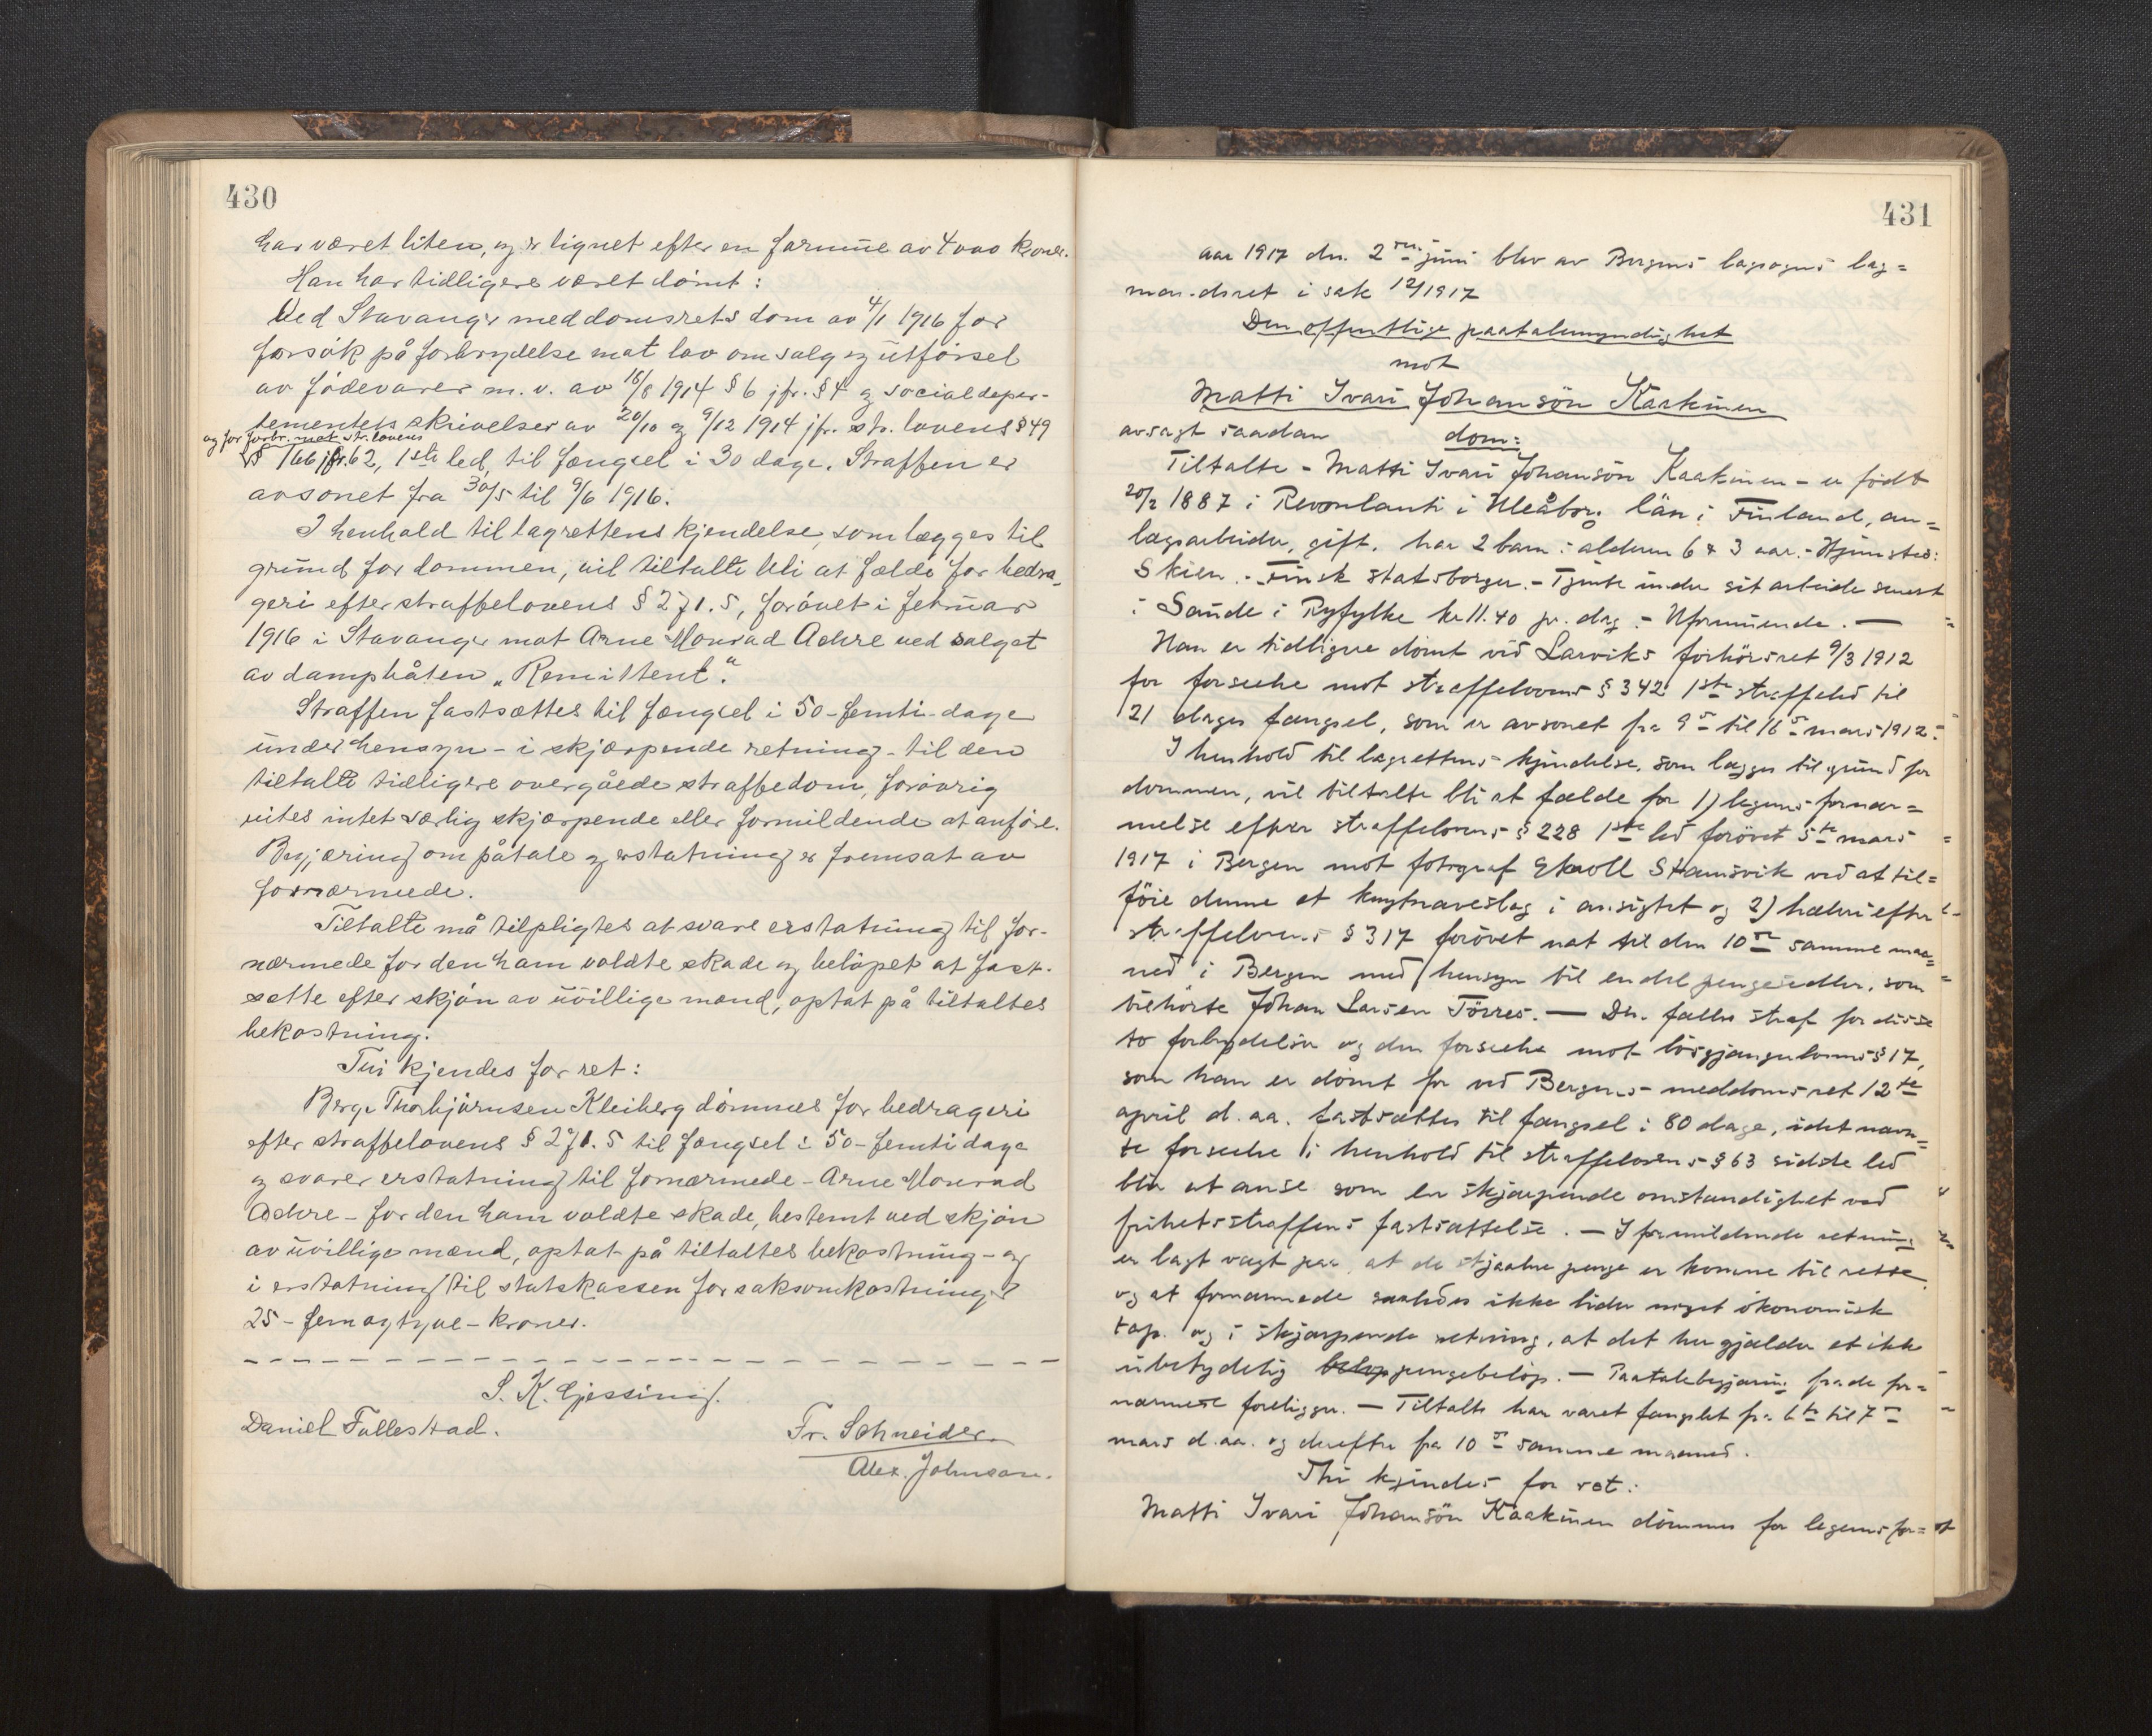 430
har været liten, og er lignet efter en formue av 4000 kroner.
Han har tidligere været dømt:
Ved Stavanger meddomsrets dom av 4/1 1916 for
forsök på forbrydelse mot lov om salg og utförsel
av födevarer m. v. av 18/8 1914 § 6 jfr. § 4 og socialdepar-
tementets skrivelser av 20/10 og 9/12 1914 jfr. str. lovens § 49
og for forbr. mot str. lovens
§ 166 jfr. 62, 1ste led, til fængsel i 30 dage. Straffen er
avsonet fra 30/5 til 9/6 1916.
I henhold til lagrettens kjendelse, som lægges til
grund for dommen, vil tiltalte bli at fælde for bedra-
geri efter straffelovens § 271. 5, forövet i februar
1916 i Stavanger mot Arne Monrad Aahre ved salget
av dampbåten „Remittent“.
Straffen fastsættes til fængsel i 50 - femti - dage
under hensyn - i skjærpende retning - til den
tiltalte tidligere overgåede straffedom, forövrig
vites intet særlig skjærpende eller formildende at anföre.
Begjæring om påtale og erstatning er fremsat av
fornærmede.
Tiltalte må tilpligtes at svare erstatning til for-
nærmede for den ham voldte skade og belöpet at fast-
sætte efter skjön av uvillige mænd, optat på tiltaltes
bekostning.
Thi kjendes for ret:
Berge Thorbjörnsen Kleiberg dömmes for bedrageri
efter straffelovens § 271. 5 til fængsel i 50 - femti dage
og svarer erstatning til fornærmede - Arne Monrad
Aahre - for den ham voldte skade, bestemt ved skjön
av uvillige mænd, optat på tiltaltes bekostning - og
i erstatning til statskassen for saksomkostninger
25 - femogtyve - kroner.
S. K. Gjessing.
Daniel Fallestad.
Fr. Schneider.
Alex. Johnson.
431
aar 1917 den 2den juni blev av Bergens lagsogns lag=
mandsret i sak 12/1917
Den offentlige paatalemyndighet
mot
Matti Ivari Johansön Kaakinen
avsagt saadan dom:
Tiltalte - Matti Ivari Johansön Kaakinen - er födt
20/2 1887 i Revonlanti i Uleåborg län i Finland, an=
lægsarbeider, gift, har 2 barn i alderen 6 & 3 aar. - Hjemsted:
Skien. - Finsk statsborger. - Tjente under sit arbeide senest
i Saude i Ryfylke kr 11.40 pr. dag. - Uformuende. —
Han er tidligere dömt ved Larviks forhörsret 9/3 1912
for forseelse mot straffelovens § 342 1ste straffeled til
21 dages fængsel, som er avsonet fra 9de til 16de mars 1912.
I henhold til lagrettens kjendelse, som lægges til grund for
dommen, vil tiltalte bli at fælde for 1) legemsfornær=
melse efter straffelovens § 228 1ste led forövet 5te mars
1917 i Bergen mot fotograf Ekroll Stamsvik ved at til=
föie denne et knytnæveslag i ansigtet og 2) hæleri efter
straffelovens § 317 forövet nat til den 10de samme maa=
ned i Bergen med hensyn til endel pengesedler, som
tilhörte Johan Larsen Törres. — Den fælles straf for disse
to forbrydelser og den forseelse mot lösgjængerlovens § 17,
som han er dömt for ved Bergens meddomsret 12te
april d. aa. fastsættes til fængsel i 80 dage, idet nævn=
te forseelse i henhold til straffelovens § 63 sidste led
blir at anse som en skjærpende omstændighet ved
frihetsstraffens fastsættelse. — I formildende retning
er lagt vegt paa, at de stjaalne penge er komne til rette
og at fornærmede saaledes ikke lider noget ökonomisk
tap, og i skjærpende retning, at det her gjælder et ikke
ubetydelig pengebelöp. — Paatalebegjæring fra de for=
nærmede foreligger. — Tiltalte har været fængslet fra 6te til 7de
mars d. aa. og derefter fra 10de samme maaned.
Thi kjendes for ret:
Matti Ivari Johansön Kaakinen dömmes for legemsfor=